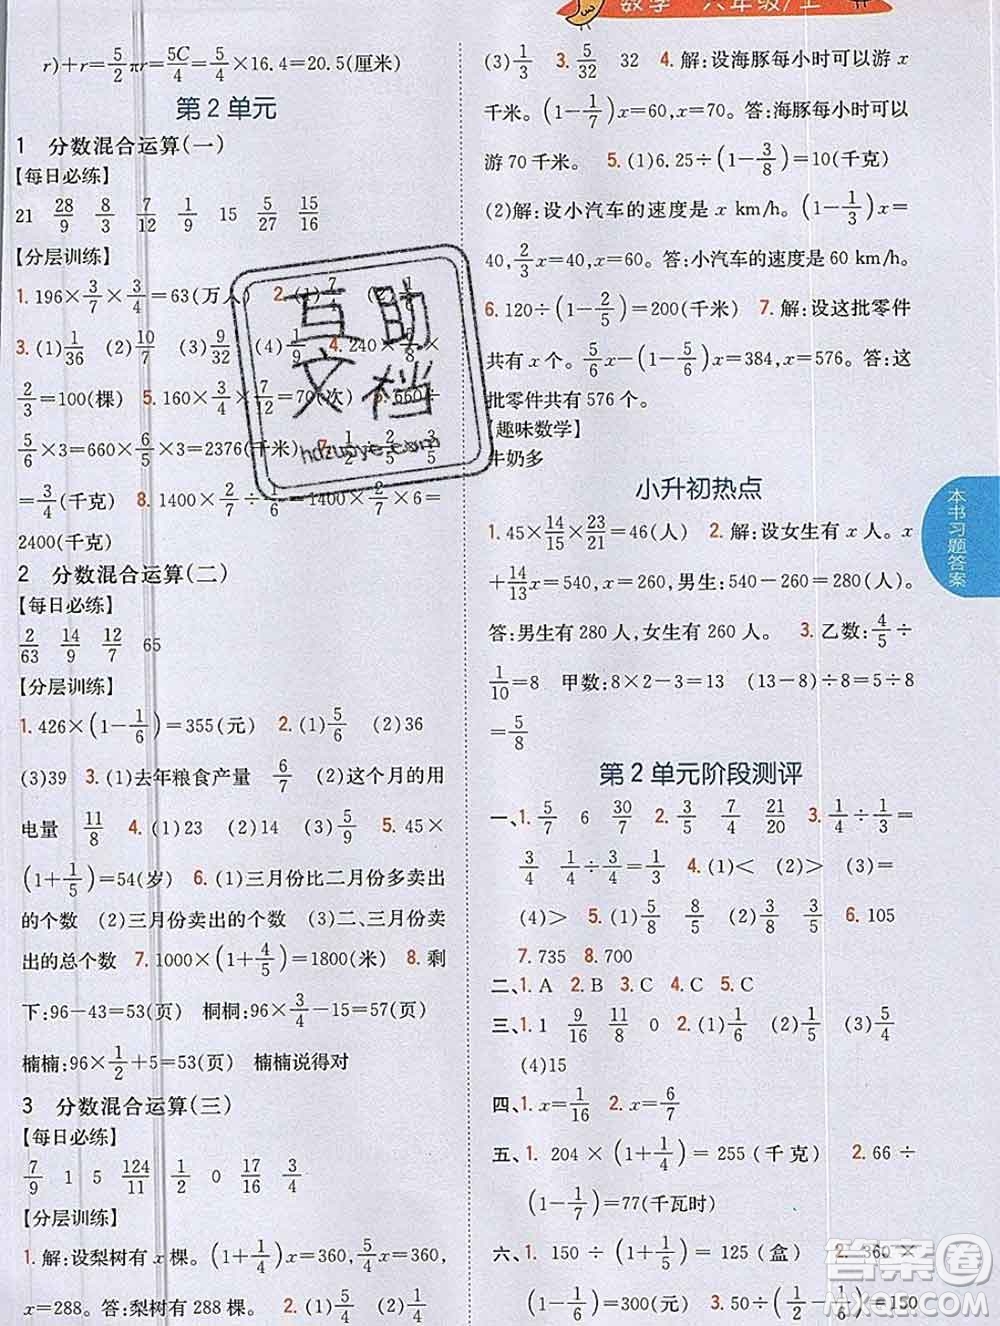 r)+r=5/2πr=5C/4=5/4×16.4=20.5(厘米)
第2单元
1 分数混合运算(一)
【每日必练】
21 28/9 8/3 7/12 1/9 15 5/27 15/16
【分层训练】
1.196×3/7×3/4=63(万人) 2.(1)7
3.(1)1/36 (2)10/7 (3)9/32 (4)1/9 4.240×5/8×
2/3=100(棵) 5.160×3/4×7/12=70(次) 6.660÷
5/6×3=660×6/5×3=2376(千米) 7.1/2×2/5×3/5
=3/4(千克) 8.1400×2/7÷1/6=1400×2/7×6=
2400(千克)
2 分数混合运算(二)
【每日必练】
2/63 14/9 12/7 65
【分层训练】
1.426×(1-1/6)=355(元) 2.(1)5/6 (2)36
(3)39 3.(1)去年粮食产量 6/7 (2)这个月的用
电量 11/8 4.(1)23 (2)14 (3)5/9 5.45×
(1+1/5)=54(岁) 6.(1)三月份比二月份多卖出
的个数 (2)三月份卖出的个数 (3)二、三月份卖
出的总个数 7.1000×(1+4/5)=1800(米) 8.剩
下:96-43=53(页) 桐桐:96×3/4-15=57(页)
楠楠:96×1/2+5=53(页) 楠楠说得对
3 分数混合运算(三)
【每日必练】
7/9 1 5 124/11 1/2 0 17/16 3/4
【分层训练】
1.解:设梨树有x棵。(1+1/4)x=360,5/4x=360,
x=288。答:梨树有288棵。 2.(1)5/4 (2)1/6
数学 六年级/上
(3)1/3 3.5/32 32 4.解:设海豚每小时可以游x
千米。(1-1/7)x=60,x=70。答:海豚每小时可以
游70千米。 5.(1)6.25÷(1-3/8)=10(千克)
(2)解:设小汽车的速度是x km/h。(1-1/3)x=
40,2/3x=40,x=60。答:小汽车的速度是60 km/h。
6.120÷(1-2/5)=200(千米) 7.解:设这批零件
共有x个。5/6x-(1-5/6)x=384,x=576。答:这
批零件共有576个。
【趣味数学】
牛奶多
小升初热点
1.45×14/15×23/21=46(人) 2.解:设女生有x人。x
+14/13x=540,x=260 540-260=280(人)
答:男生有280人,女生有260人。 3.乙数:4/5÷
1/10=8 甲数:8×2-3=13 (13-8)÷8=5÷8
=5/8
第2单元阶段测评
一、1.5/7 6 30/7 2.3/5 7/4 21/20 3.1/4÷1/3=
3/4 1/4÷3/4=1/3 4.(1)< (2)> (3)=
(4)> 5.(1)5/8 8/5 (2)4/5 6.105
7.735 8.700
二、1.A 2.B 3.A 4.C 5.C
三、1.1 9/16 11/8 0 2.(1)1/6 (2)1/6 (3)5/4
(4)15
四、1.x=1/16 2.x=6/7
五、1.204×(1+1/4)=255(千克) 2.66÷
(1-1/7)=77(千瓦时)
六、1.150÷(1+1/5)=125(盒) 2.360×
(1-1/6)=300(元) 3.50÷(1/2-1/6)=150
本书习题答案
互助文档
hdzuoye.com
答案圈